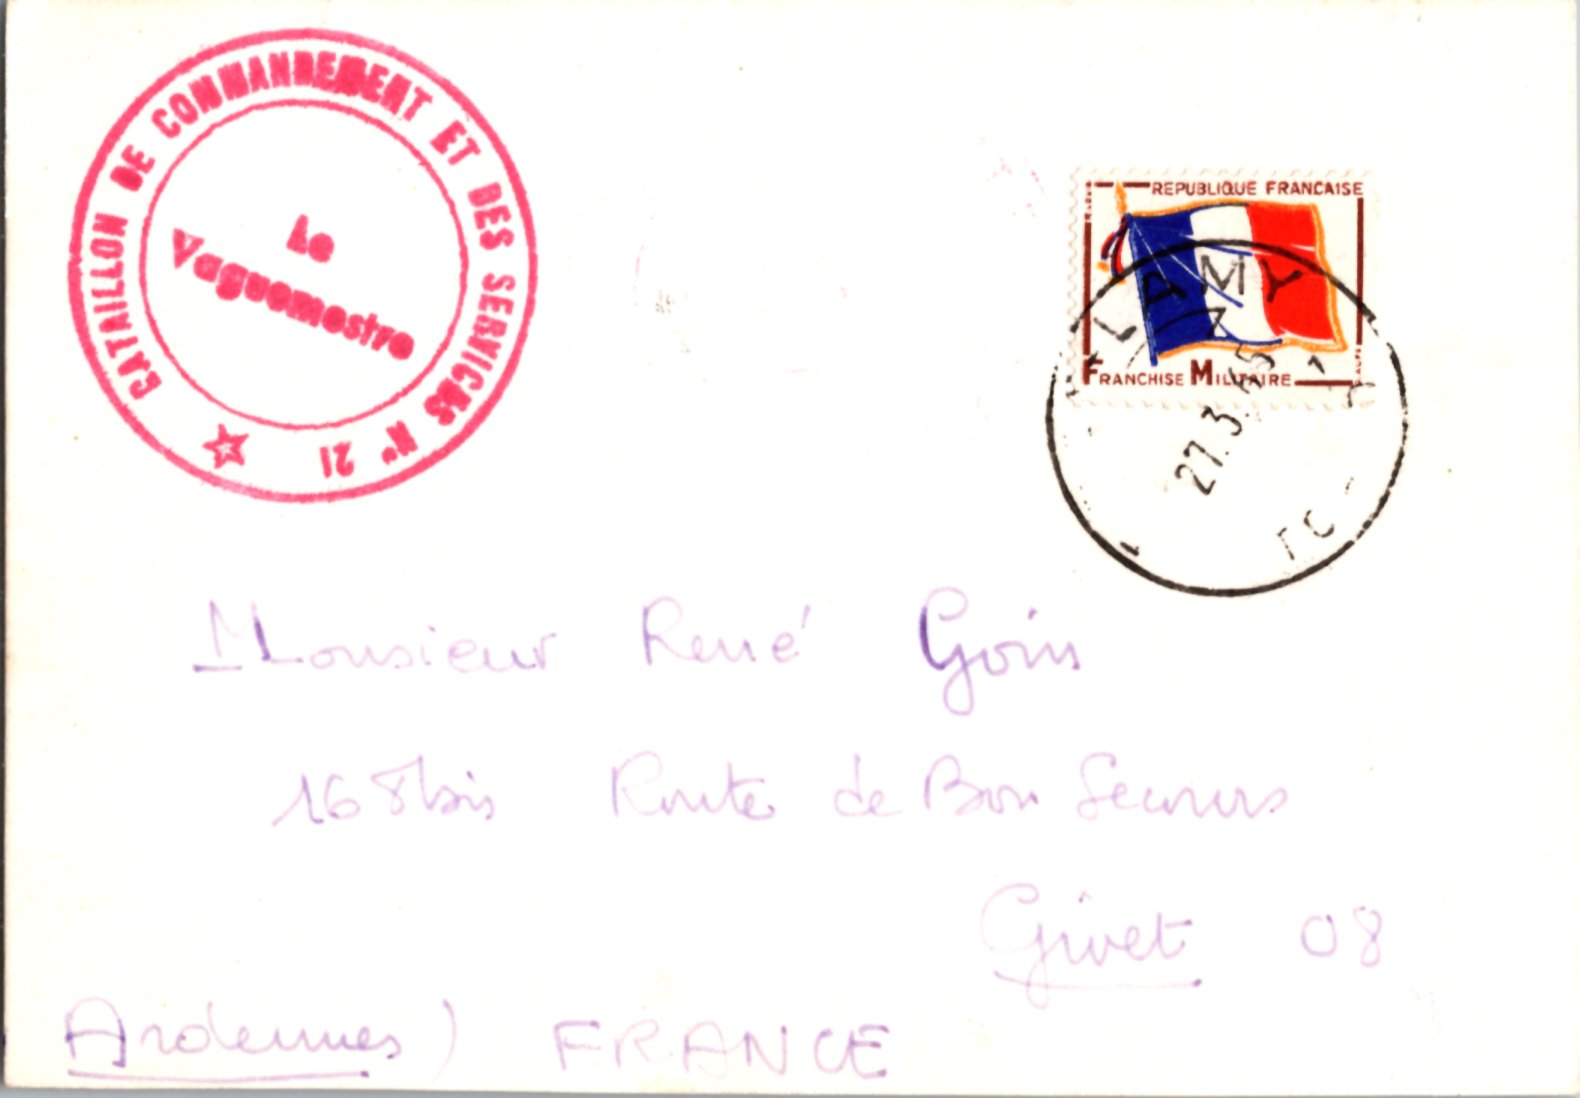 BATAILLON DE COMMANDEMENT ET DES SERVICES N° 21
Le
Vaguemestre
REPUBLIQUE FRANCAISE
FRANCHISE MILITAIRE
LAMY
27.3.65
Monsieur René Goin
168bis Route de Bon Secours
Givet 08
Ardennes) FRANCE